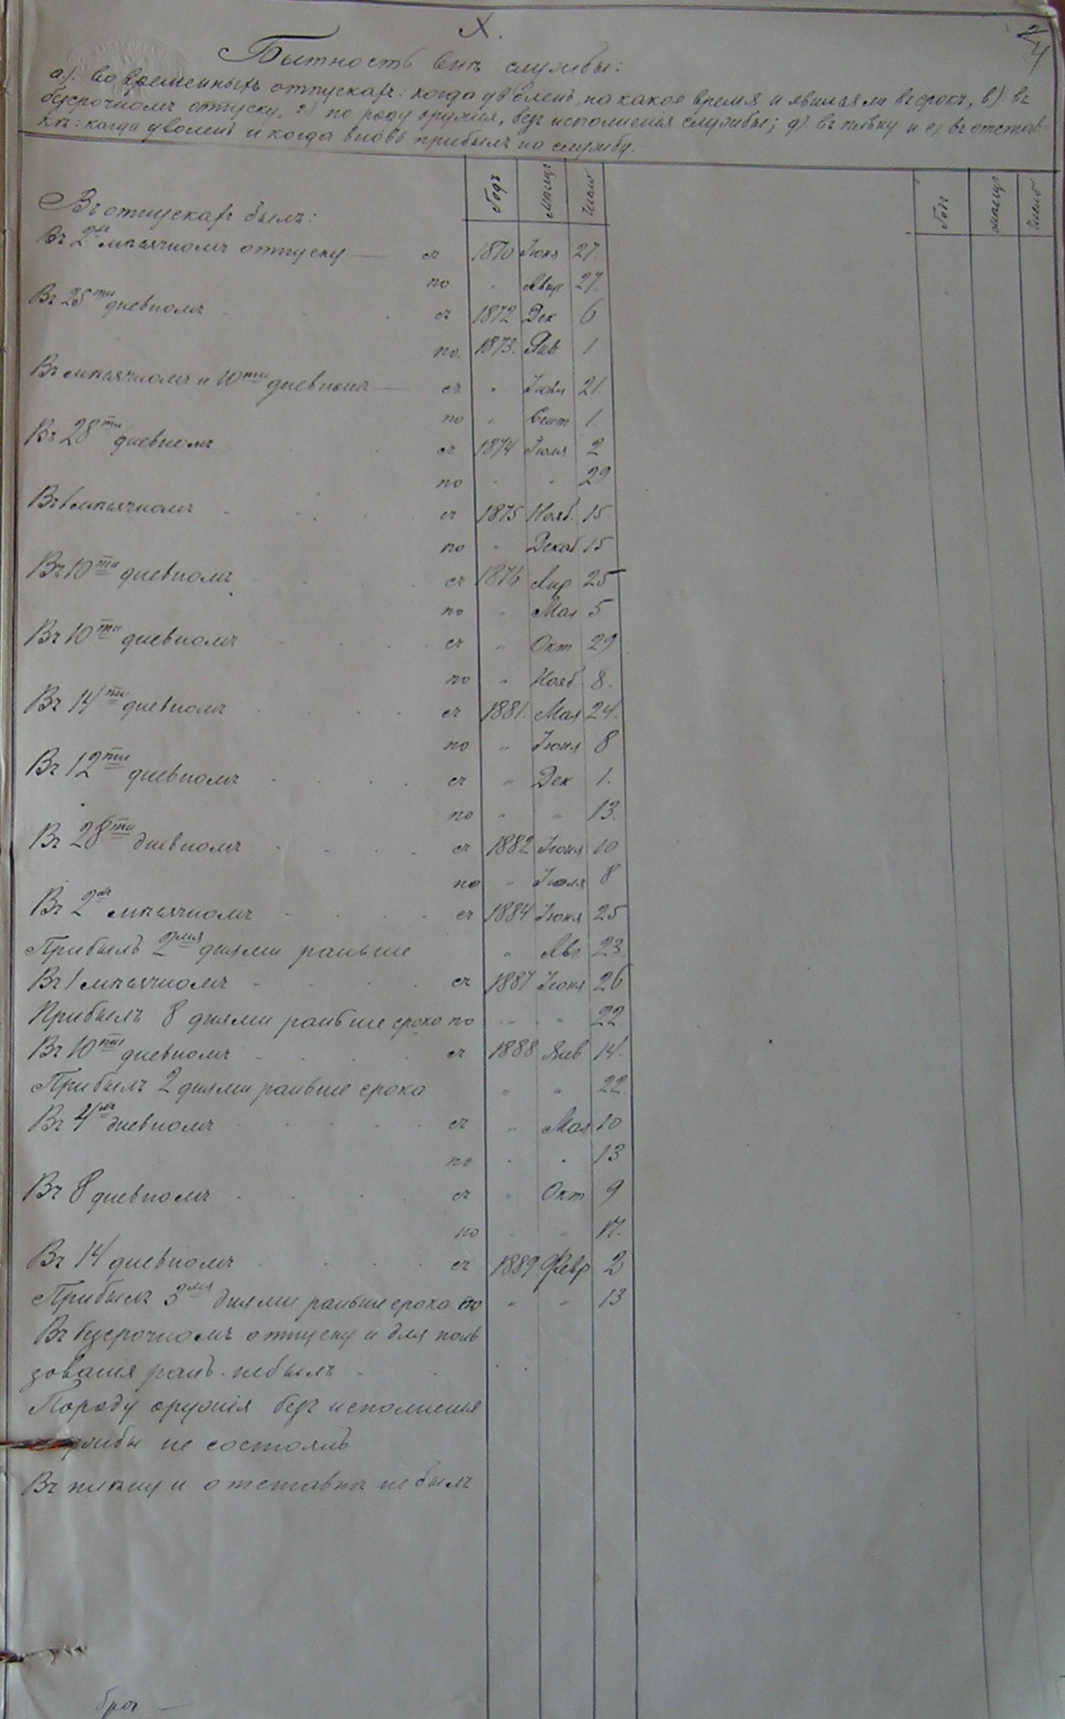 X.
2
4
Бытность внѣ службы:
а). во временныхъ отпускахъ: когда уволенъ, на какое время и явился ли въ срокъ, в) въ
безсрочномъ отпуску, г) по роду оружія, безъ исполненія службы; д) въ плѣну и е) въ отстав-
кѣ: когда уволенъ и когда вновь прибылъ на службу.
Годъ Мѣсяцъ Число Годъ Мѣсяцъ Число
Въ отпускахъ былъ:
Въ 2хъ мѣсячномъ отпуску — съ 1870 Іюня 27.
по " Авгус 27.
Въ 25ти дневномъ съ 1872 Дек 6
по 1873. Янв 1
Въ мѣсячномъ и 10ти дневномъ — съ " Іюля 21.
по " Сент 1.
Въ 28ти дневномъ съ 1874 Іюля 2
по " " 29
Въ 1 мѣсячномъ съ 1875 Нояб. 15
по " Декаб 15
Въ 10ти дневномъ съ 1876 Апр 25
по " Мая 5
Въ 10ти дневномъ съ " Окт 29
по " Нояб 8.
Въ 14ти дневномъ съ 1881. Мая 24.
по " Іюня 8
Въ 12ти дневномъ съ " Дек 1.
по " " 13.
Въ 28ти дневномъ съ 1882 Іюня 10
по " Іюля 8
Въ 2хъ мѣсячномъ съ 1884 Іюня 25
Прибылъ 2мя днями раньше " Авг. 23
Въ 1 мѣсячномъ съ 1887 Іюня 26
Прибылъ 8 днями раньше срока по " " 22
Въ 10ти дневномъ съ 1888 Янв 14.
Прибылъ 2 днями раньше срока " " 22
Въ 4хъ дневномъ съ " Мая 10
по " " 13
Въ 8 дневномъ съ " Окт 9
по " " 17.
Въ 14 дневномъ съ 1889 Февр 2
Прибылъ 3мя днями раньше срока по " " 13
Въ безсрочномъ отпуску и для поль
зованія ранъ не былъ
По роду оружія безъ исполненія
службы не состоялъ
Въ плѣну и отставкѣ не былъ